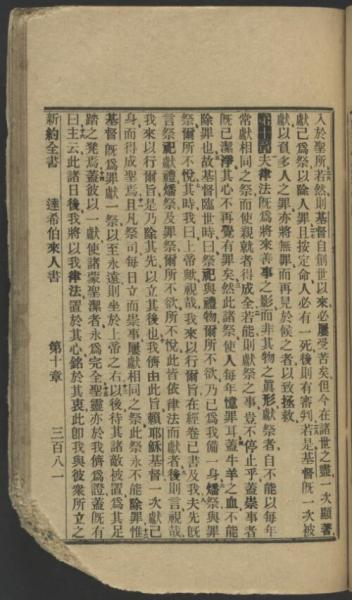 入於聖所、若然、則基督自創世以來、必屢受苦矣、但今在諸世之盡、一次顯著、
獻己為祭、以除人罪、且按定命、人必有一死、後則有審判、若是、基督旣一次被
獻、以負多人之罪、亦將無罪而再見於候之者、以致拯救、
第十章夫律法旣為將來善事之影、而非其物之眞形、獻祭者、自不能以每年
常獻相同之祭、而使親就者得成全、若能、則獻祭之事、豈不停止乎、蓋崇事者
旣已潔淨、其心不再覺有罪矣、然此諸祭、使人每年憶罪耳、蓋牛羊之血、不能
除罪也、故基督臨世時曰、祭祀與禮物、爾所不欲、乃已為我備一身、燔祭與罪
祭、爾所不悅、其時我曰、上帝歟、視哉、我來以行爾旨、在經卷已書及我、夫先旣
言祭祀獻禮燔祭及罪祭、爾所不欲所不悅、此皆依律法而獻者、後則言視哉、
我來以行爾旨、是乃除其先、以立其後也、我儕由此旨、賴耶穌基督、一次獻己
身、而得成聖焉、且凡祭司每日立而崇事、屢獻相同之祭、此祭永不能除罪、惟
基督旣為罪獻一祭、以至永遠、則坐於上帝之右、以後待其諸敵被置為其足
踏之凳焉、蓋彼以一獻、使諸蒙聖潔者、永為完全、聖靈亦於我儕為證、蓋旣有
曰、主云、此諸日後、我將以我律法置於其心、銘於其衷、此卽我與彼衆所立之
新約全書 達希伯來人書 第十章 三百八一